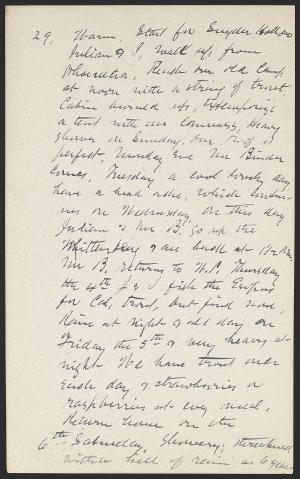 29, Warm. Start for Snyder Hollow
Julian & I, walk up from
Phoenicia, Reach our old camp
at noon with a string of trout.
Cabin burned up, extemporize
a tent with our canvass, heavy
shower on Sunday, our roof is
perfect, Monday eve Mr Binder
comes, Tuesday a cool lovely day,
have a head ache, which contin-
ues on Wednesday, on this day
Julian & Mr B. go up the
Wittenberg & are back at
Mr B. returns to W.P. Thursday
the 4th J & I fish the Esopus
for Cal, trout, but find none,
Rain at night & all day on
Friday the 5th & very heavy at
night. We have trout over
each day & strawberries or
raspberries at every meal,
Return home on the
6th Saturday, Showery, threatened
with hell of rain as 6 years